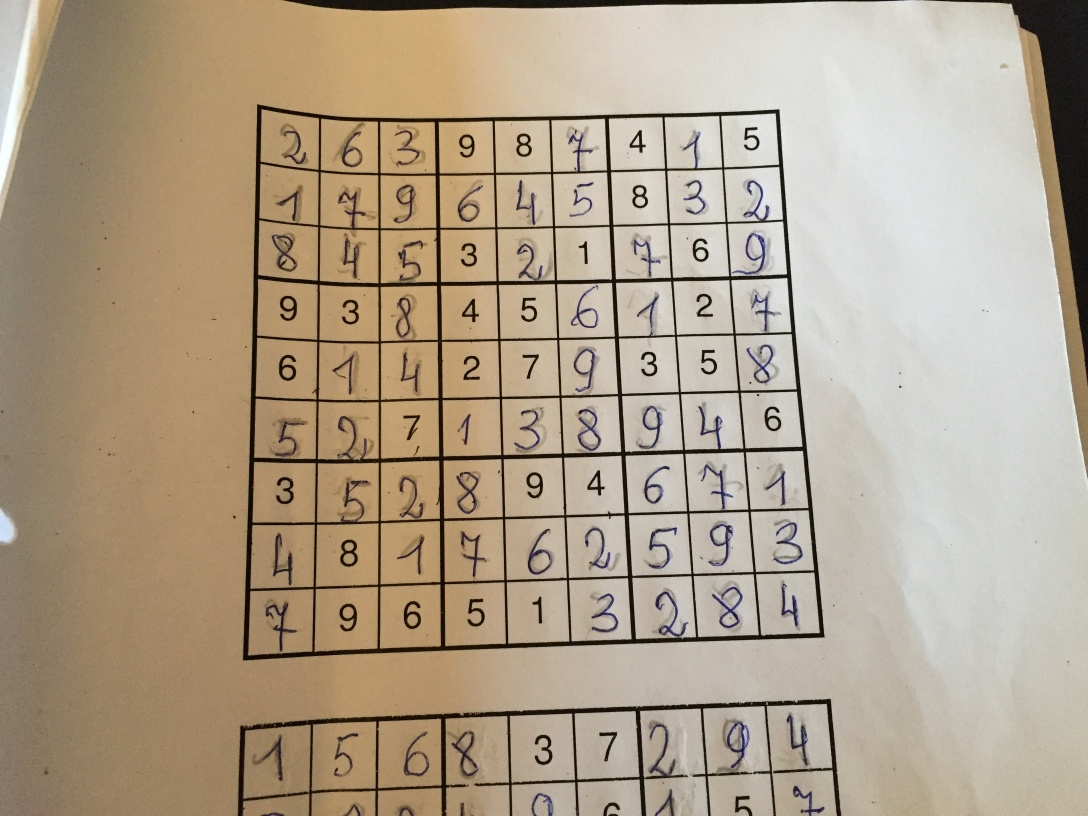 2 6 3 9 8 7 4 1 5
1 7 9 6 4 5 8 3 2
8 4 5 3 2 1 7 6 9
9 3 8 4 5 6 1 2 7
6 1 4 2 7 9 3 5 8
5 2 7 1 3 8 9 4 6
3 5 2 8 9 4 6 7 1
4 8 1 7 6 2 5 9 3
7 9 6 5 1 3 2 8 4
1 5 6 8 3 7 2 9 4
9 6 1 5 7